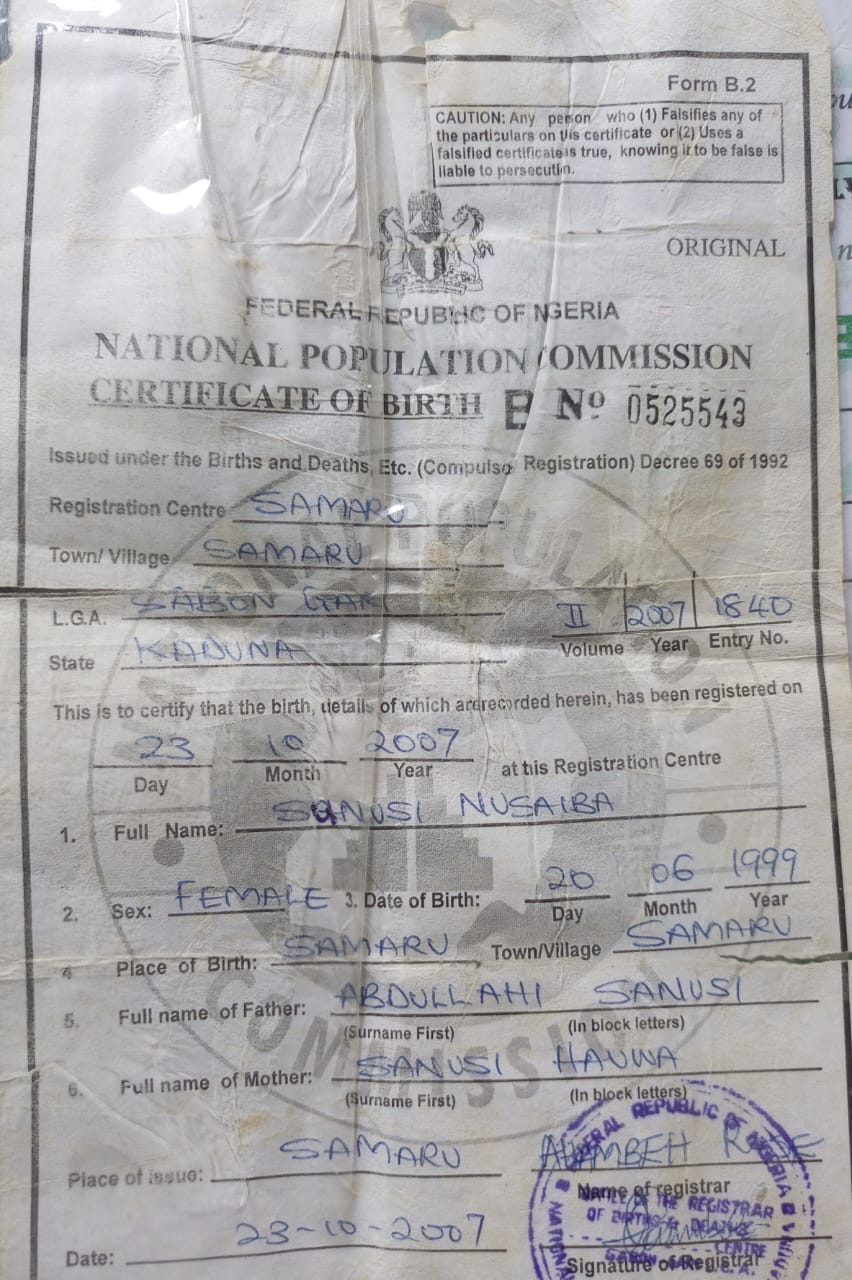 Form B.2
CAUTION: Any person who (1) Falsifies any of
the particulars on this certificate or (2) Uses a
falsified certificate is true, knowing it to be false is
liable to persecutin.
ORIGINAL
FEDERAL REPUBLIC OF NGERIA
NATIONAL POPULATION COMMISSION
CERTIFICATE OF BIRTH B No 0525543
Issued under the Births and Deaths, Etc. (Compulso Registration) Decree 69 of 1992
Registration Centre SAMARU
Town/ Village SAMARU
L.G.A. SABON GARI
II 2007 1840
Volume Year Entry No.
State KADUNA
This is to certify that the birth, details of which are recorded herein, has been registered on
23 10 2007 at this Registration Centre
Day Month Year
1. Full Name: SANUSI NUSAIBA
2. Sex: FEMALE 3. Date of Birth: 20 06 1999
Day Month Year
4 Place of Birth: SAMARU Town/Village SAMARU
5. Full name of Father: ABDULLAHI SANUSI
(Surname First) (In block letters)
6. Full name of Mother: SANUSI HAUWA
(Surname First) (In block letters)
Place of issue: SAMARU
Name of registrar
Date: 23-10-2007
Signature of Registrar
FEDERAL REPUBLIC OF NIGERIA
OFFICE OF THE REGISTRAR
OF BIRTHS & DEATHS
CENTRE
NATIONAL POPULATION COMMISSION